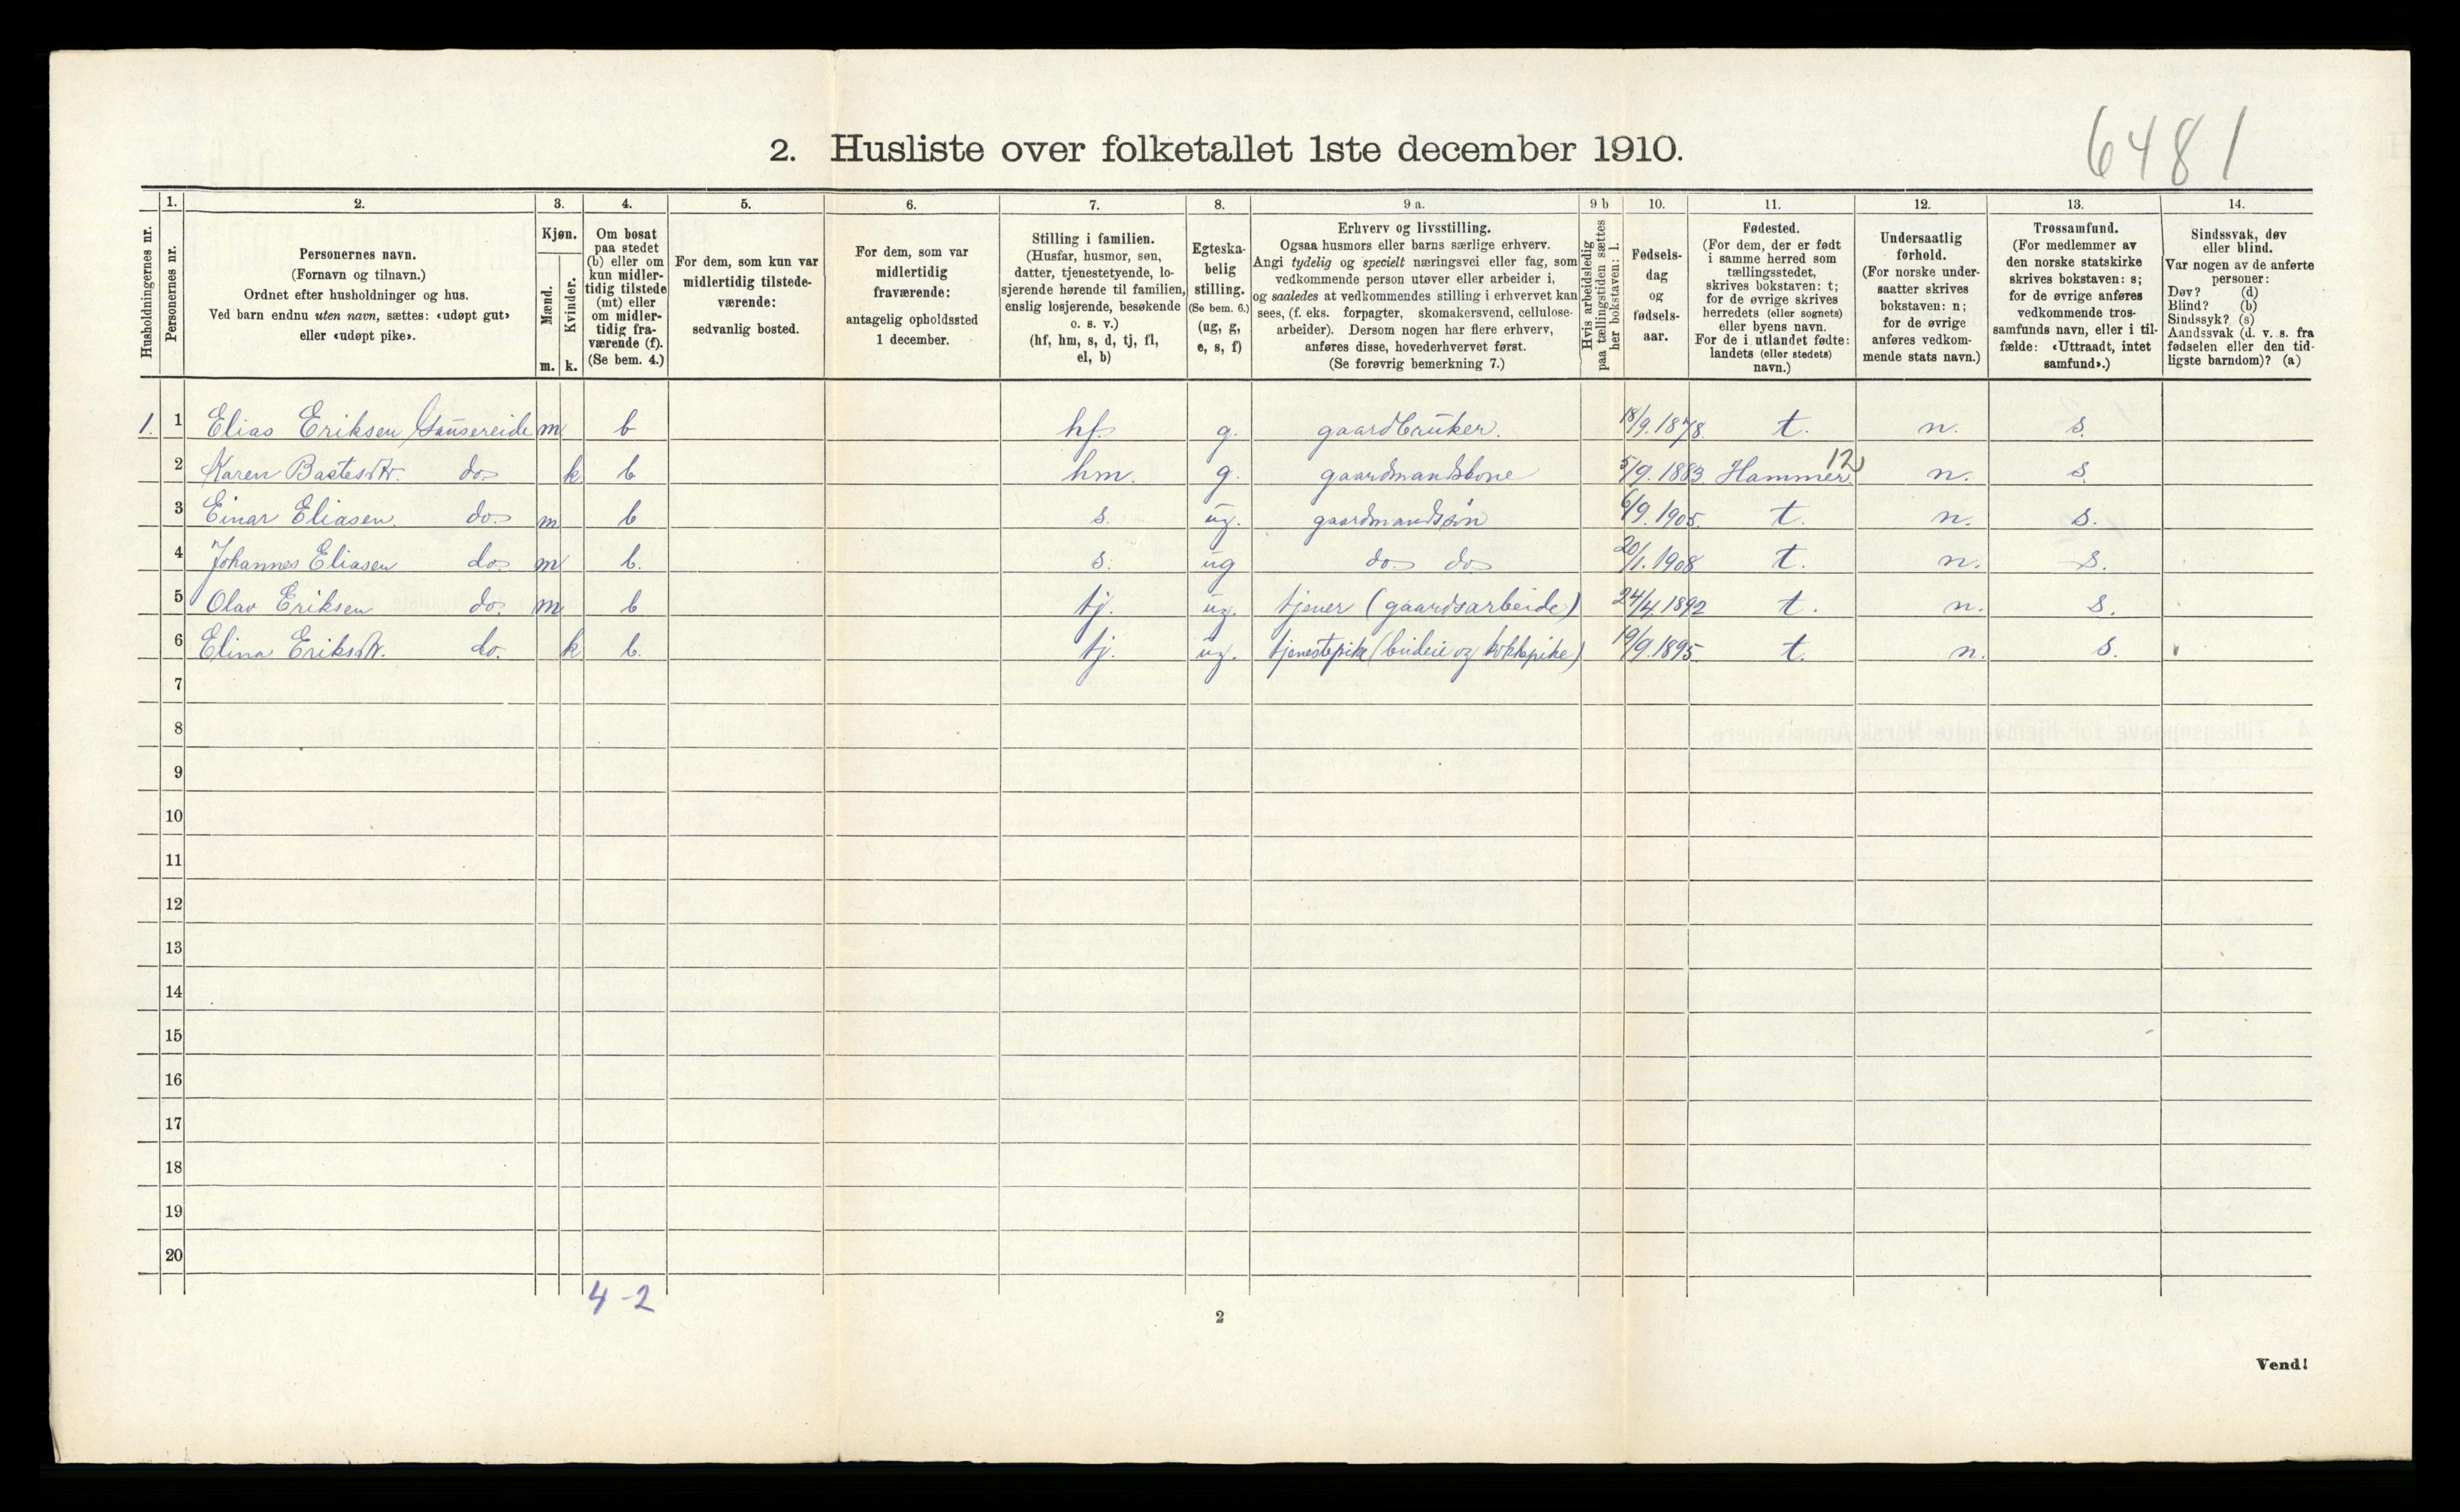 6481
2. Husliste over folketallet 1ste december 1910.
Husholdningernes nr.
1.
Personernes nr.
2.
Personernes navn.
(Fornavn og tilnavn.)
Ordnet efter husholdninger og hus.
Ved barn endnu uten navn, sættes: «udøpt gut»
eller «udøpt pike».
3.
Kjøn.
Mænd.
Kvinder.
m. k.
4.
Om bosat
paa stedet
(b) eller om
kun midler-
tidig tilstede
(mt) eller
om midler-
tidig fra-
værende (f).
(Se bem. 4.)
5.
For dem, som kun var
midlertidig tilstede-
værende:
sedvanlig bosted.
6.
For dem, som var
midlertidig
fraværende:
antagelig opholdssted
1 december.
7.
Stilling i familien.
(Husfar, husmor, søn,
datter, tjenestetyende, lo-
sjerende hørende til familien,
enslig losjerende, besøkende
o. s. v.)
(hf, hm, s, d, tj, fl,
el, b)
8.
Egteska-
belig
stilling.
(Se bem. 6.)
(ug, g,
e, s, f)
9 a.
Erhverv og livsstilling.
Ogsaa husmors eller barns særlige erhverv.
Angi tydelig og specielt næringsvei eller fag, som
vedkommende person utøver eller arbeider i,
og saaledes at vedkommendes stilling i erhvervet kan
sees, (f. eks. forpagter, skomakersvend, cellulose-
arbeider). Dersom nogen har flere erhverv,
anføres disse, hovederhvervet først.
(Se forøvrig bemerkning 7.)
9 b
Hvis arbeidsledig
paa tællingstiden sættes
her bokstaven: l.
10.
Fødsels-
dag
og
fødsels-
aar.
11.
Fødested.
(For dem, der er født
i samme herred som
tællingsstedet,
skrives bokstaven: t;
for de øvrige skrives
herredets (eller sognets)
eller byens navn.
For de i utlandet fødte:
landets (eller stedets)
navn.)
12.
Undersaatlig
forhold.
(For norske under-
saatter skrives
bokstaven: n;
for de øvrige
anføres vedkom-
mende stats navn.)
13.
Trossamfund.
(For medlemmer av
den norske statskirke
skrives bokstaven: s;
for de øvrige anføres
vedkommende tros-
samfunds navn, eller i til-
fælde: «Uttraadt, intet
samfund».)
14.
Sindssvak, døv
eller blind.
Var nogen av de anførte
personer:
Døv? (d)
Blind? (b)
Sindssyk? (s)
Aandssvak (d. v. s. fra
fødselen eller den tid-
ligste barndom)? (a)
1. 1 Elias Eriksen Gausereide m b hf. g. gaardbruker. 18/9.1878. t. n. s.
2 Karen do k b hm. g. gaardmandskone 5/9.1883 Hammer 12 n. s.
3 Einar Eliasen. do. m b s. ug. gaardmandssøn 6/9.1905. t. n. s.
4 Johannes Eliasen do m b. s. ug do do 20/1.1908 t. n. s.
5 Olav Eriksen do. m b tj. ug. tjener (gaardsarbeide) 24/4.1892 t. n. s.
6 Elina Eriksdtr. do. k b. tj. ug. tjenestepike (budeie og kokkepike) 19/9.1895 t. n. s.
7
8
9
10
11
12
13
14
15
16
17
18
19
20
4-2
2
Vend!